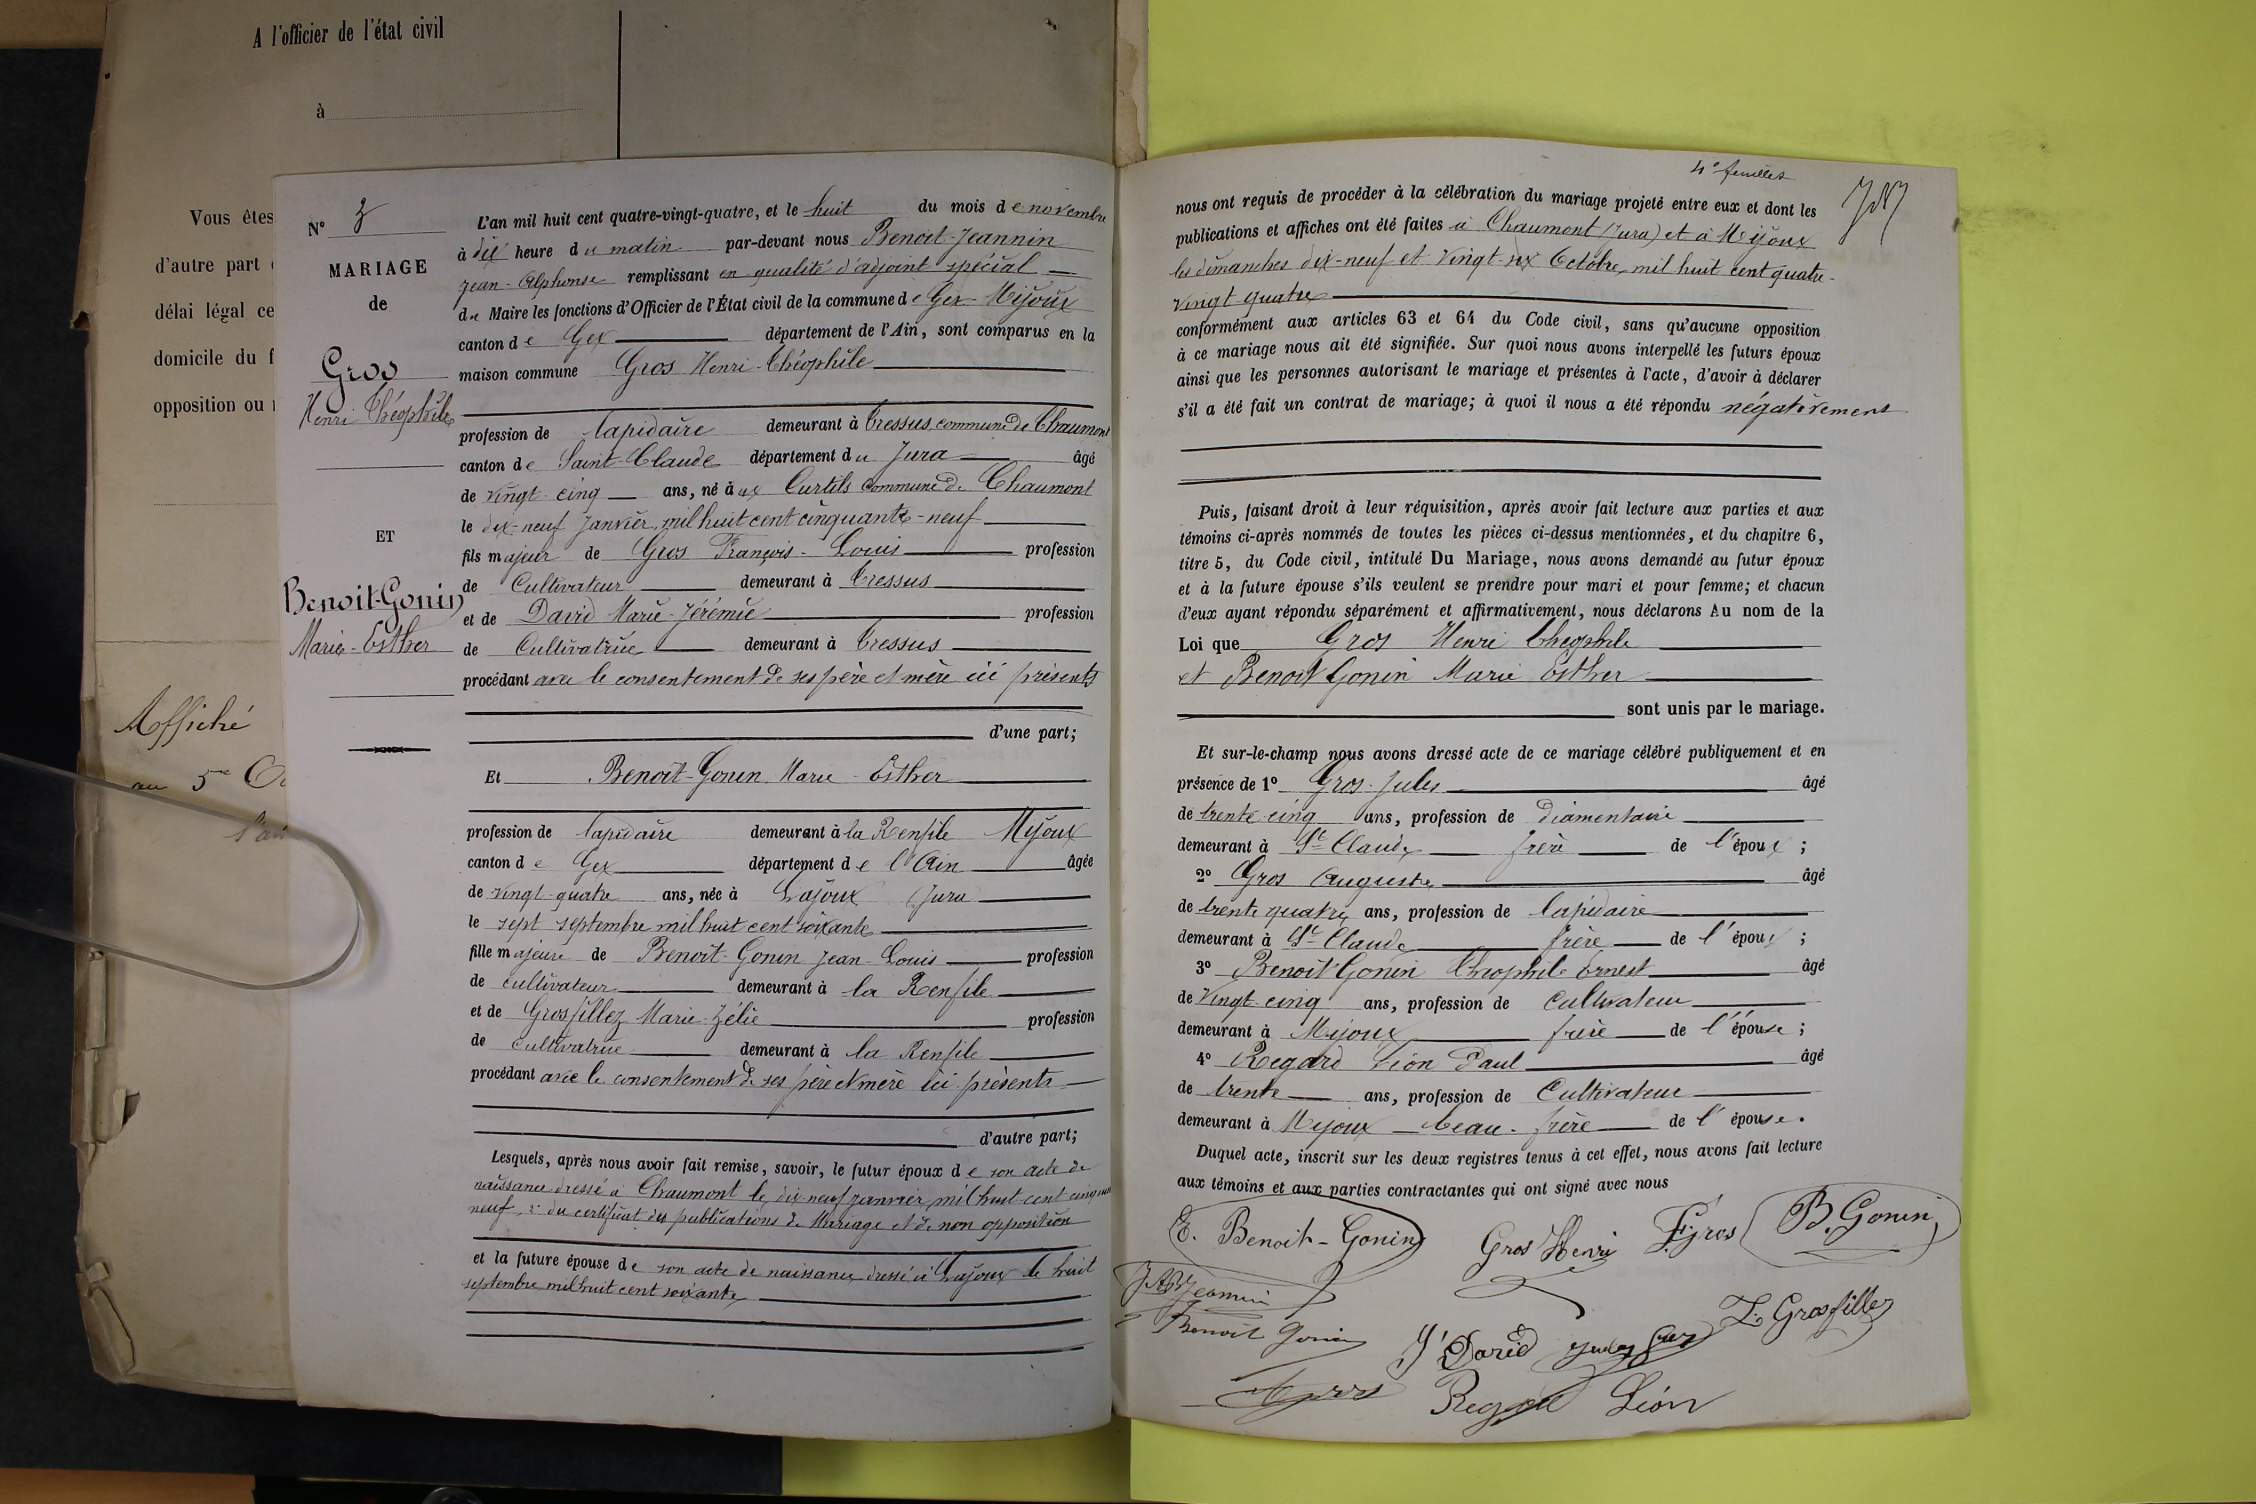 A l'officier de l'état civil
à
Vous êtes
d'autre part
délai légal ce
domicile du f
opposition ou
Affiché
au 5e
N° 3
MARIAGE
de
Gros
Henri Théophile
ET
Benoit-Gonin
Marie-Esther
L'an mil huit cent quatre-vingt-quatre, et le huit du mois de novembre
à dix heure du matin par-devant nous Benoit-Jeannin
Jean-Alphonse remplissant en qualité d'adjoint spécial
du Maire les fonctions d'Officier de l'État civil de la commune de Gex-Mijoux
canton de Gex département de l'Ain, sont comparus en la
maison commune Gros Henri-Théophile
profession de lapidaire demeurant à Tressus commune de Chaumont
canton de Saint-Claude département du Jura âgé
de vingt-cinq ans, né à ux Curtils commune de Chaumont
le dix-neuf Janvier mil huit cent cinquante-neuf
fils majeur de Gros François-Louis profession
de Cultivateur demeurant à Tressus
et de David Marie-Jérémie profession
de Cultivatrice demeurant à Tressus
procédant avec le consentement de ses père et mère ici présents
d'une part;
Et Benoit-Gonin Marie-Esther
profession de lapidaire demeurant à la Renfile Mijoux
canton de Gex département de l'Ain âgée
de vingt-quatre ans, née à Lajoux Jura
le sept septembre mil huit cent soixante
fille majeure de Benoit-Gonin Jean-Louis profession
de cultivateur demeurant à la Renfile
et de Grosfillez Marie-Zélie profession
de cultivatrice demeurant à la Renfile
procédant avec le consentement de ses père et mère ici présents
d'autre part;
Lesquels, après nous avoir fait remise, savoir, le futur époux de son acte de
naissance dressé à Chaumont le dix-neuf janvier mil huit cent cinquante
neuf, 2° du certificat des publications de Mariage et de non opposition
et la future épouse de son acte de naissance dressé à Lajoux le huit
septembre mil huit cent soixante
4e feuillet
nous ont requis de procéder à la célébration du mariage projeté entre eux et dont les
publications et affiches ont été faites à Chaumont (Jura) et à Mijoux
les dimanches dix-neuf et vingt-six Octobre mil huit cent quatre-
vingt quatre
conformément aux articles 63 et 64 du Code civil, sans qu'aucune opposition
à ce mariage nous ait été signifiée. Sur quoi nous avons interpellé les futurs époux
ainsi que les personnes autorisant le mariage et présentes à l'acte, d'avoir à déclarer
s'il a été fait un contrat de mariage; à quoi il nous a été répondu négativement
Puis, faisant droit à leur réquisition, après avoir fait lecture aux parties et aux
témoins ci-après nommés de toutes les pièces ci-dessus mentionnées, et du chapitre 6,
titre 5, du Code civil, intitulé Du Mariage, nous avons demandé au futur époux
et à la future épouse s'ils veulent se prendre pour mari et pour femme; et chacun
d'eux ayant répondu séparément et affirmativement, nous déclarons Au nom de la
Loi que Gros Henri Théophile
et Benoit Gonin Marie Esther
sont unis par le mariage.
Et sur-le-champ nous avons dressé acte de ce mariage célébré publiquement et en
présence de 1° Gros Jules âgé
de trente cinq ans, profession de diamentaire
demeurant à St Claude frère de l'époux ;
2° Gros Auguste âgé
de trente quatre ans, profession de lapidaire
demeurant à St Claude frère de l'époux ;
3° Benoit Gonin Théophile Ernest âgé
de Vingt-cinq ans, profession de cultivateur
demeurant à Mijoux frère de l'épouse ;
4° Regard Léon Paul âgé
de trente ans, profession de Cultivateur
demeurant à Mijoux beau-frère de l'épouse.
Duquel acte, inscrit sur les deux registres tenus à cet effet, nous avons fait lecture
aux témoins et aux parties contractantes qui ont signé avec nous
E. Benoit-Gonin Gros Henri F. gros B. Gonin
JABJeannin
Benoit Gonin J. David Jules Gros Z. Grosfillez
A gros Regard Léon